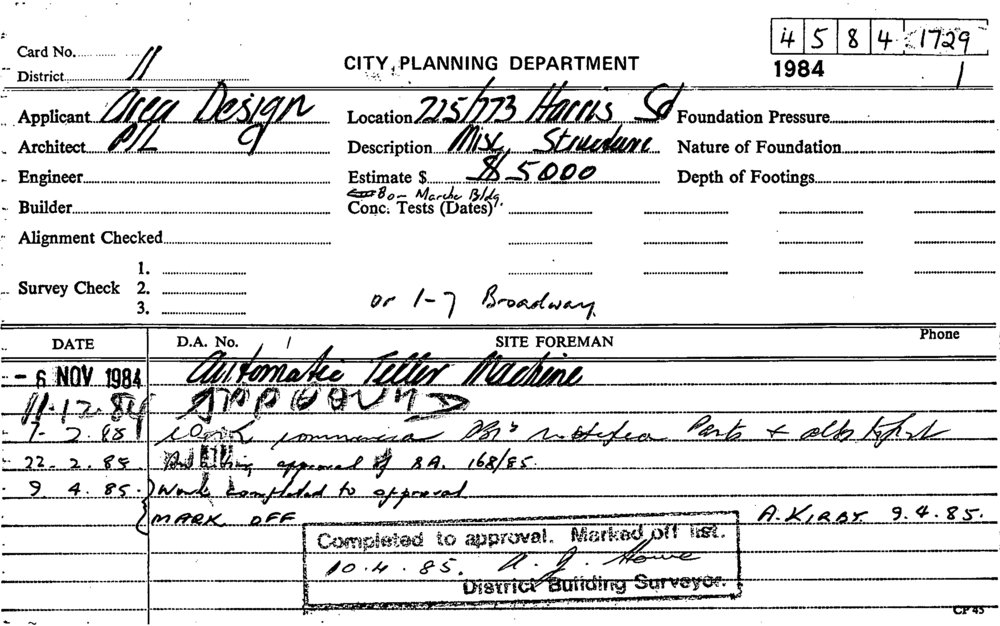 4 5 8 4 1729
Card No.
District 11
CITY PLANNING DEPARTMENT
1984 1
Applicant Area Design Location 725/773 Harris St Foundation Pressure
Architect P/L Description Misc Structure Nature of Foundation
Engineer Estimate $ $ 5000 Depth of Footings
80- Marche Bldg.
Builder Conc. Tests (Dates)
Alignment Checked
1.
Survey Check 2.
3.
or 1-7 Broadway
DATE D.A. No. 1 SITE FOREMAN Phone
- 6 NOV 1984 Automatic Teller Machine
11.12.84 APPROVED
7- 2.85 Work Parts +
22.2.85 approval of BA. 168/85.
9.4.85. Work completed to approval
MARK OFF A. KIRBY 9.4.85.
Completed to approval. Marked off list.
10.4.85. A. J. Howe
District Building Surveyor.
CP 45